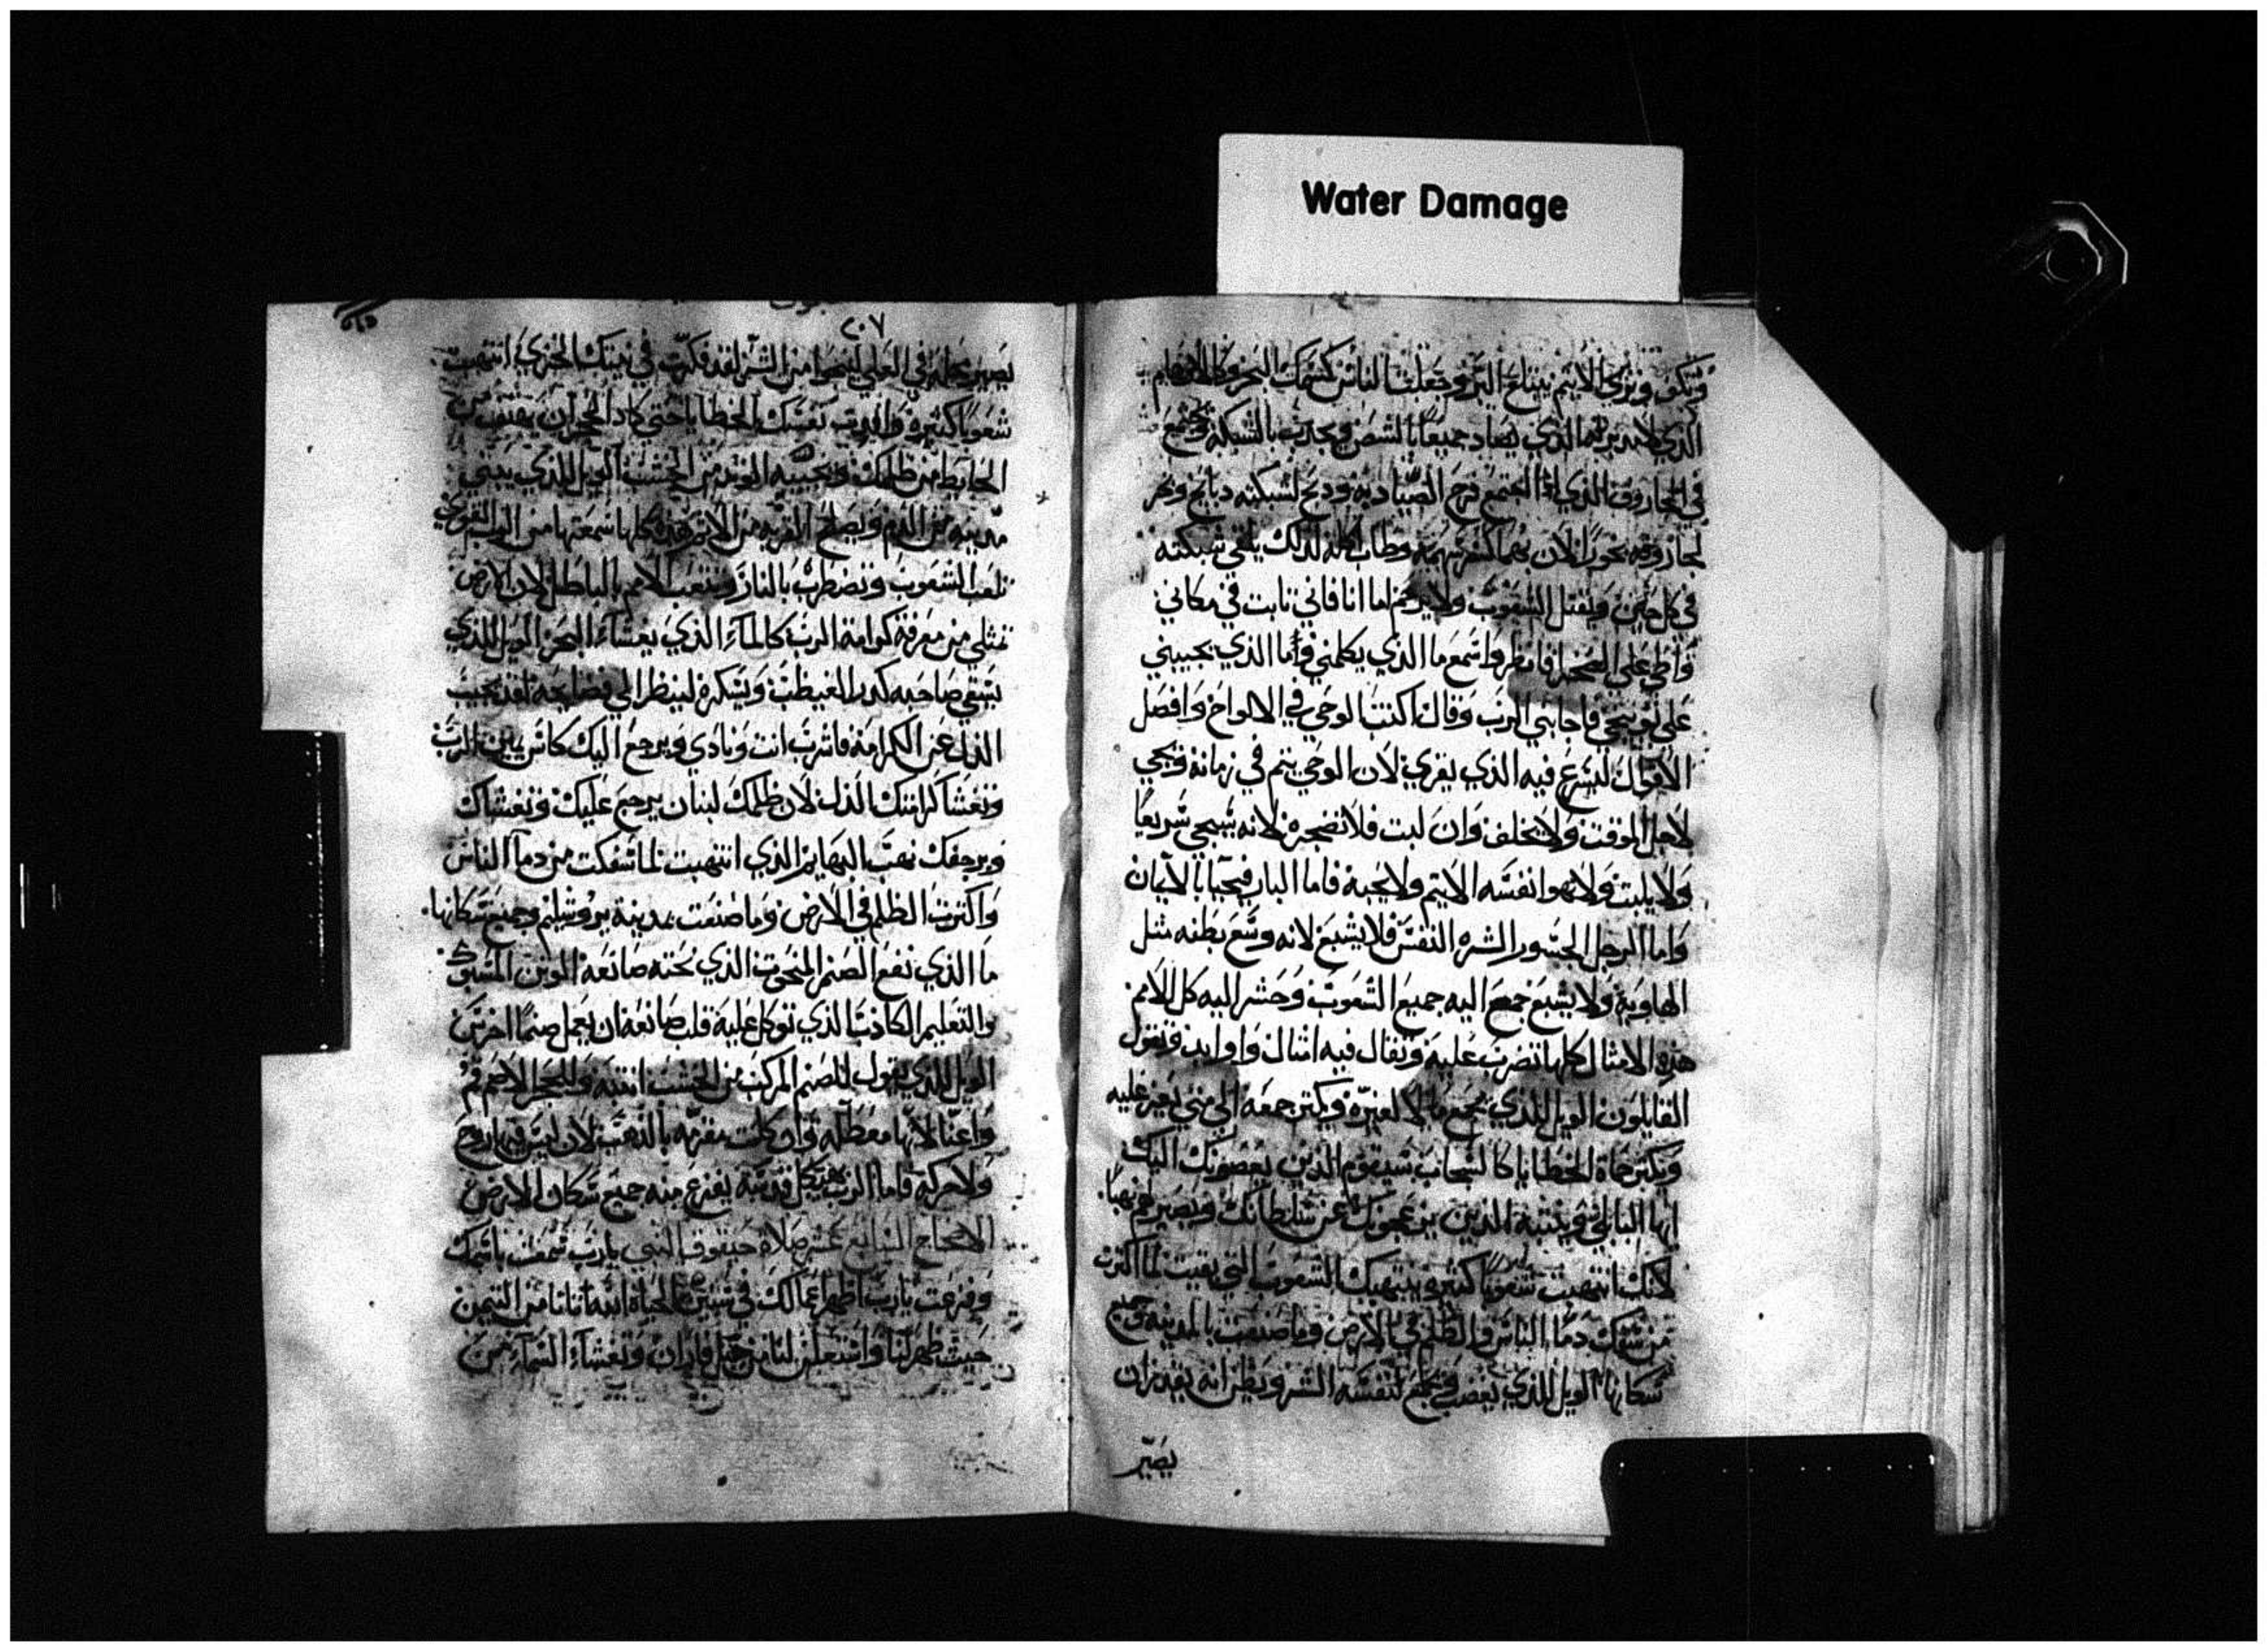 Water Damage
وتسكت وترى الاثيم يبتلع البر وجعلت الناس كسمك البحر وكالهوام
الذي لا مدبر لهما الذي يصاد جميعا بالشص ويجذب بالشبكة ويجمع
في الذي اذا اجتمع فرح الصياد به وذبح لشبكته ذبايح ونحر
بخورا لان بهما كثر سهمه وطاب اكله لذلك يلقي شبكته
في كل حين ويقتل الشعوب ولا يرحم اما انا فاني ثابت في مكاني
واطي على الصخرا فانظر واسمع ما الذي يكلمني وما الذي يجيبني
على توبيخي فاجابني الرب وقال اكتب الوحي في الالواح وافصل
الاقوال ليسرع فيه الذي يقرى لان الوحي يتم في زمانه ويجي
لاجل الموقت ولا يخلف وان لبث فلا تضجره لانه سيجي سريعا
ولا يلبث ولا تهوا نفسه الاثيم ولا يحبه فاما البار فيحيا بالايمان
واما الرجل الجسور الشره النفس فلا يشبع لانه وسع بطنه مثل
الهاوية ولا يشبع جمع اليه جميع الشعوب وحشر اليه كل الامم
هذه الامثال كلها تضرب عليه وتقال فيه امثال واوابد ويقول
القايلون الويل للذي يجمع ما لا لغيره ويكثر جمعه الى متى يغير عليه
ويكثر حاة الخطايا كالسحاب سيقوم الذين يعضونك اليك
ايها البالي وينتبه الذين يزعجونك عن سلطانك وتصير لهم نهبا
لانك انتهبت شعوبا كثيره ينتهبك الشعوب التي بقيت لما اكثرت
من سفك دما الناس والظلم في الارض وما صنعت بالمدينه وجميع
سكانها الويل للذي يغضب ويجمع لنفسه الشر ويظن انه يقدر ان
يصير
٢٠٧
يصير محله في العلي لينجوا من الشر لقد فكرت في بيتك الخزي انتهبت
شعوبا كثيره نفسك الخطايا حتى كاد الحجر ان
الحايط من ظلمك وتجيبه الوتد من الخشب الويل للذي يبني
مدينه من الدم ويصلح القريه من الاثم هذه كلها سمعتها من الرب القوي
تلعب الشعوب وتضطرب بالنار وتتعب الامم بالباطل لان الارض
تمتلي من معرفة كرامة الرب كالماء الذي يغشاء البحر الويل للذي
يسقي صاحبه كدر الغيظ ويسكره لينظر الي فضايحه لقد نجيت
الذل عن الكرامة فاشرب انت ونادي ويرجع اليك كاس يمين الرب
وتغشا كرامتك الذل لان ظلمك لبنان يرجع عليك وتغشاك
ويرجفك نهب البهايم الذي انتهبت لما سفكت من دما الناس
واكثرت الظلم في الارض وما صنعت بمدينة يروشليم وجميع سكانها
ما الذي نفع الصنم المنحوت الذي نحته صانعه الوثن المسبوك
والتعليم الكاذب الذي توكل عليه قلب صانعه ان يعمل صنما اخرس
الويل للذي يقول للصنم المركب من الخشب انتبه وللحجر الاصم قم
واعنا لانها معطله وان كانت مقربه بالذهب لان ليس فيها روح
ولا حركه فاما الرب هيكل قدسه يفزع منه جميع سكان الارض
الاصحاح الثالث عشر صلاة حبقوق النبي يا رب سمعت باسمك
وفزعت يا رب اظهر اعمالك في سنين الحياه الله اتانا من التيمن
حيث ظهر لنا واستعلن لنا من جبل فاران وتغشاء السماء من